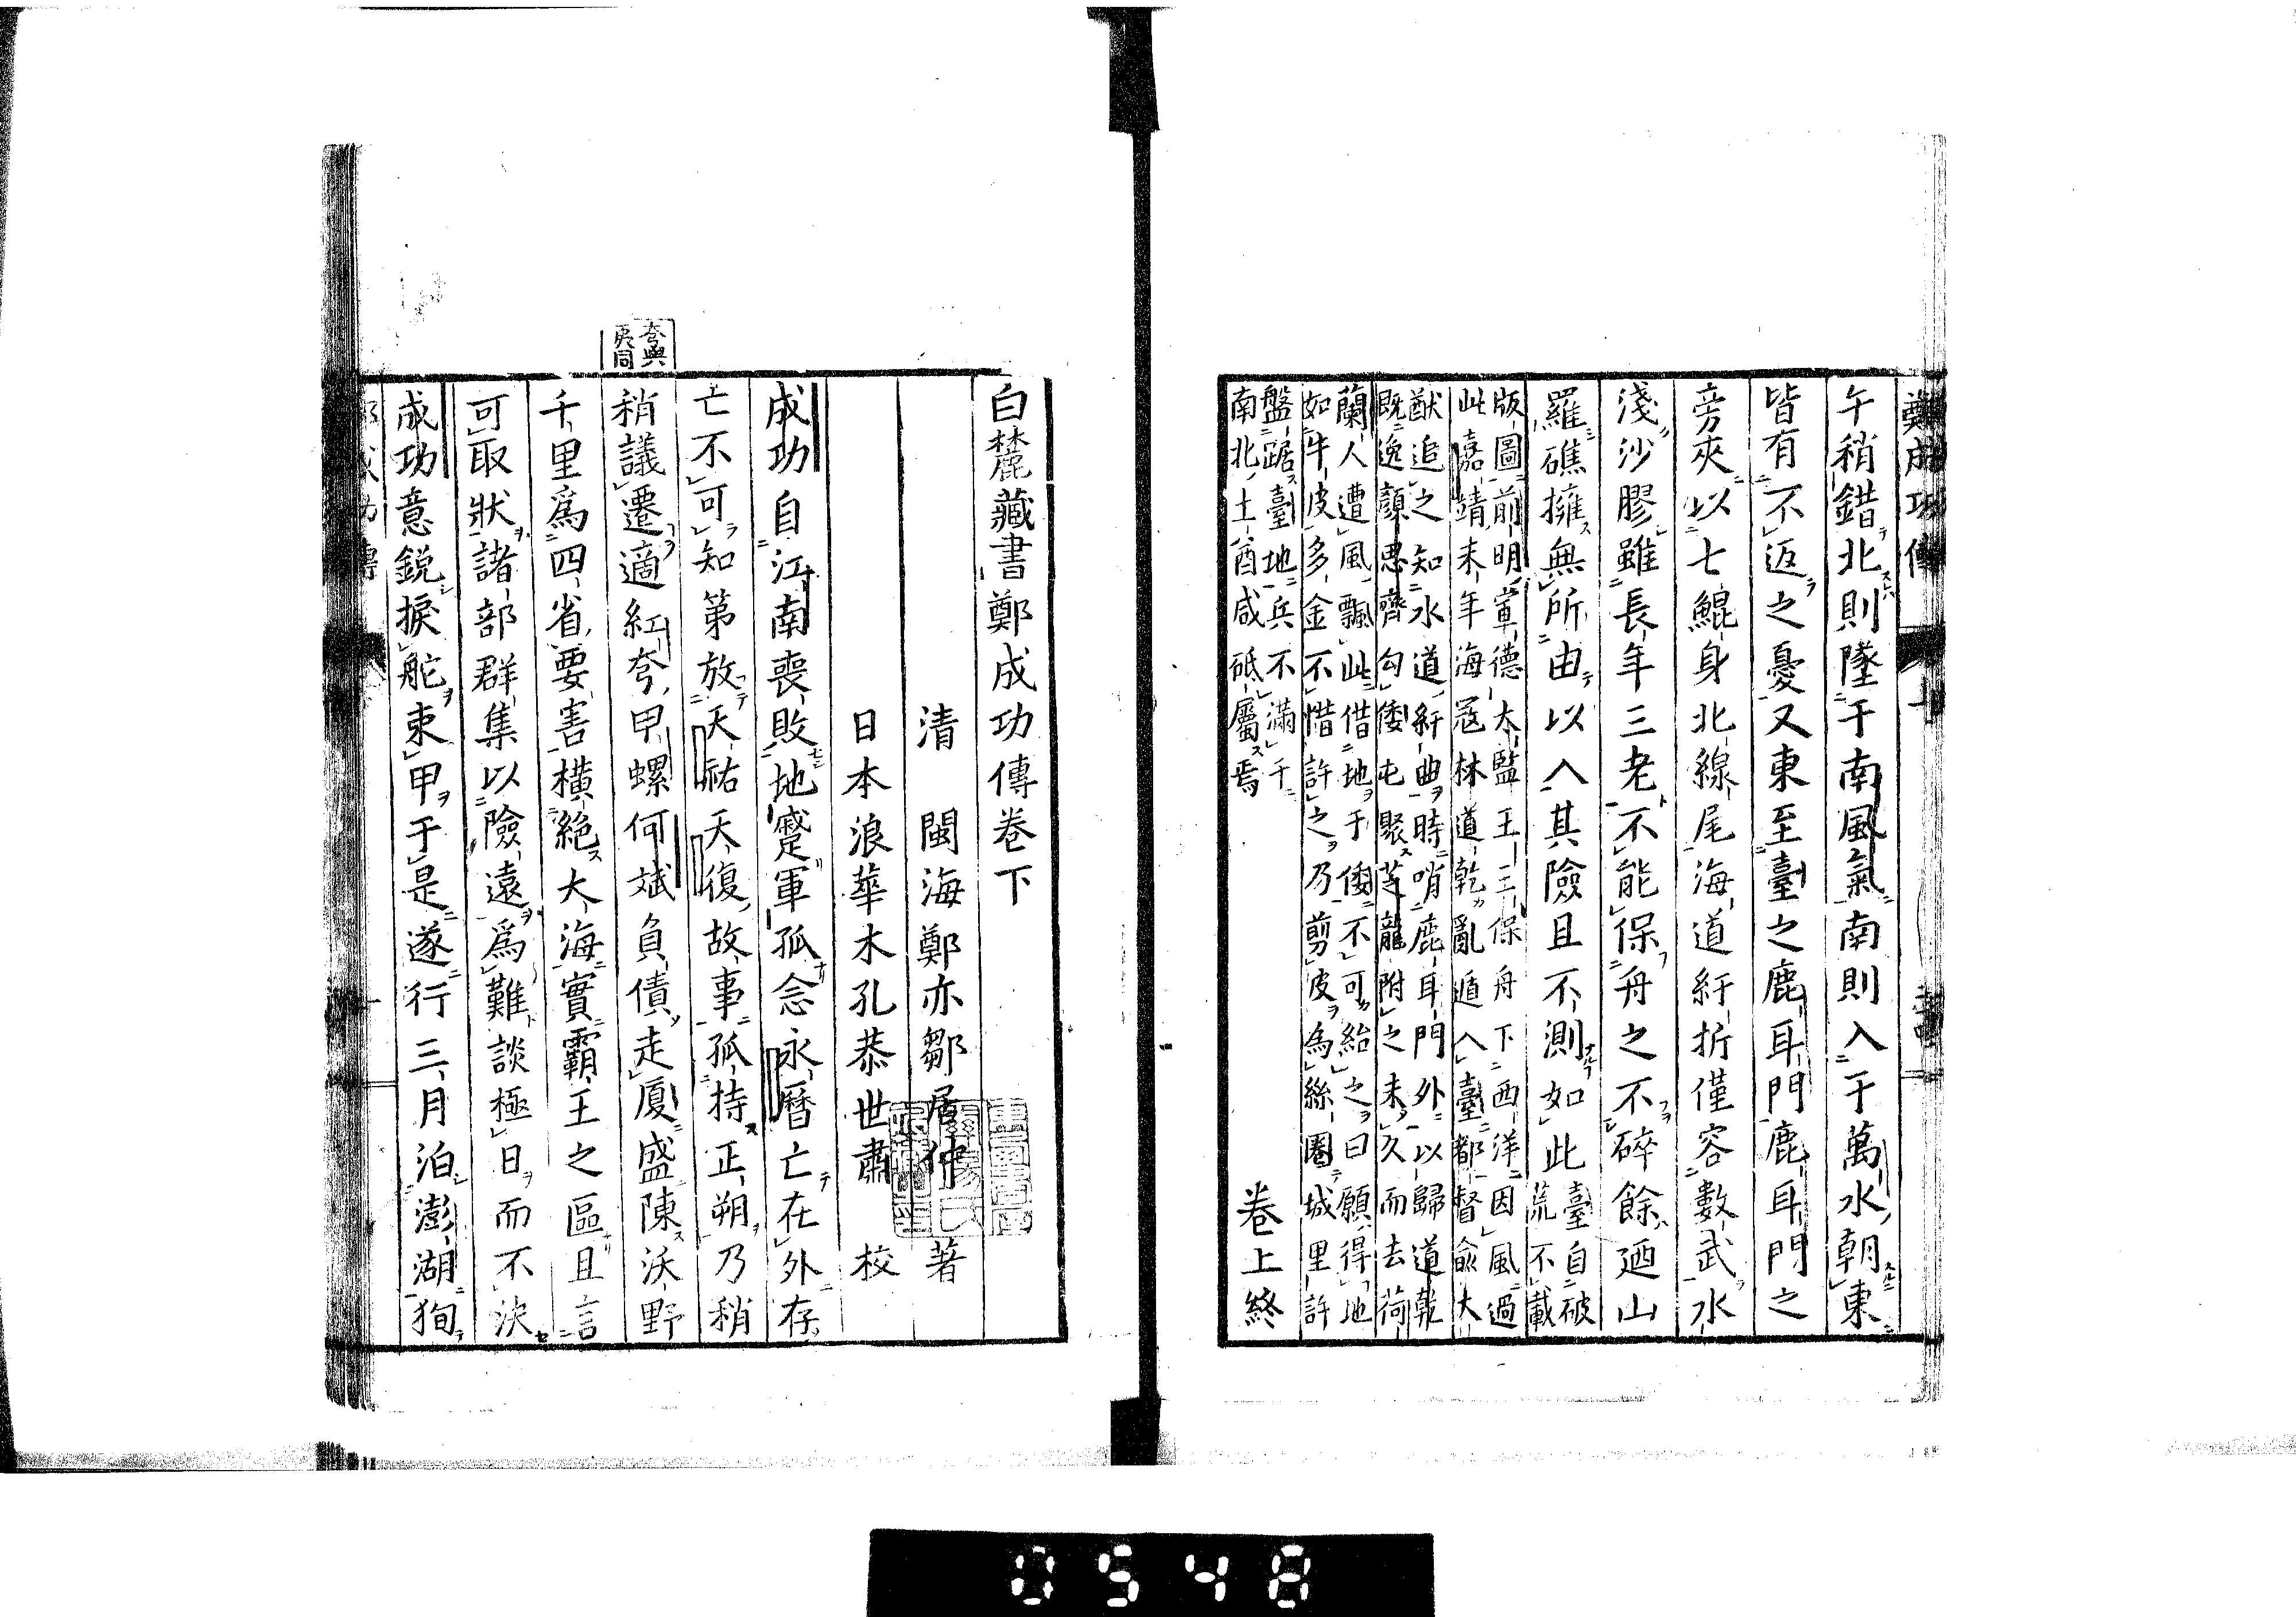 鄭成功傳
午稍錯北則墜于南風氣南則入于萬水朝東
皆有不返之憂又東至臺之鹿耳門鹿耳門之
旁夾以七鯤身北線尾海道紆折僅容數武水
淺沙膠雖長年三老不能保舟之不碎餘廼山
羅礁擁無所由以入其險且不測如此臺自破
荒不載
版圖前明宣德太監王三保舟下西洋因風過
此嘉靖末年海寇林道乾亂遁入臺都督俞大
猷追之知水道紆曲時哨鹿耳門外以歸道乾
既逸顏思齊勾倭屯聚芝龍附之未久而去荷
蘭人遭風飄此借地于倭不可紿之曰願得地
如牛皮多金不惜許之乃剪皮為絲圈城里許
盤踞臺地兵不滿千
南北土酋咸砥屬焉
卷上終
白麓藏書鄭成功傳卷下
清 閩海鄭亦鄒居仲 著
日本浪華木孔恭世肅 校
成功自江南喪敗地蹙軍孤念永曆亡在外存
亡不可知第放天祐天復故事孤持正朔乃稍
稍議遷適紅夸甲螺何斌負債走廈盛陳沃野
千里為四省要害橫絕大海實霸王之區且言
可取狀諸部群集以險遠為難談極日而不決
成功意銳捩舵束甲于是遂行三月泊澎湖狥
夸與
夷同
0548